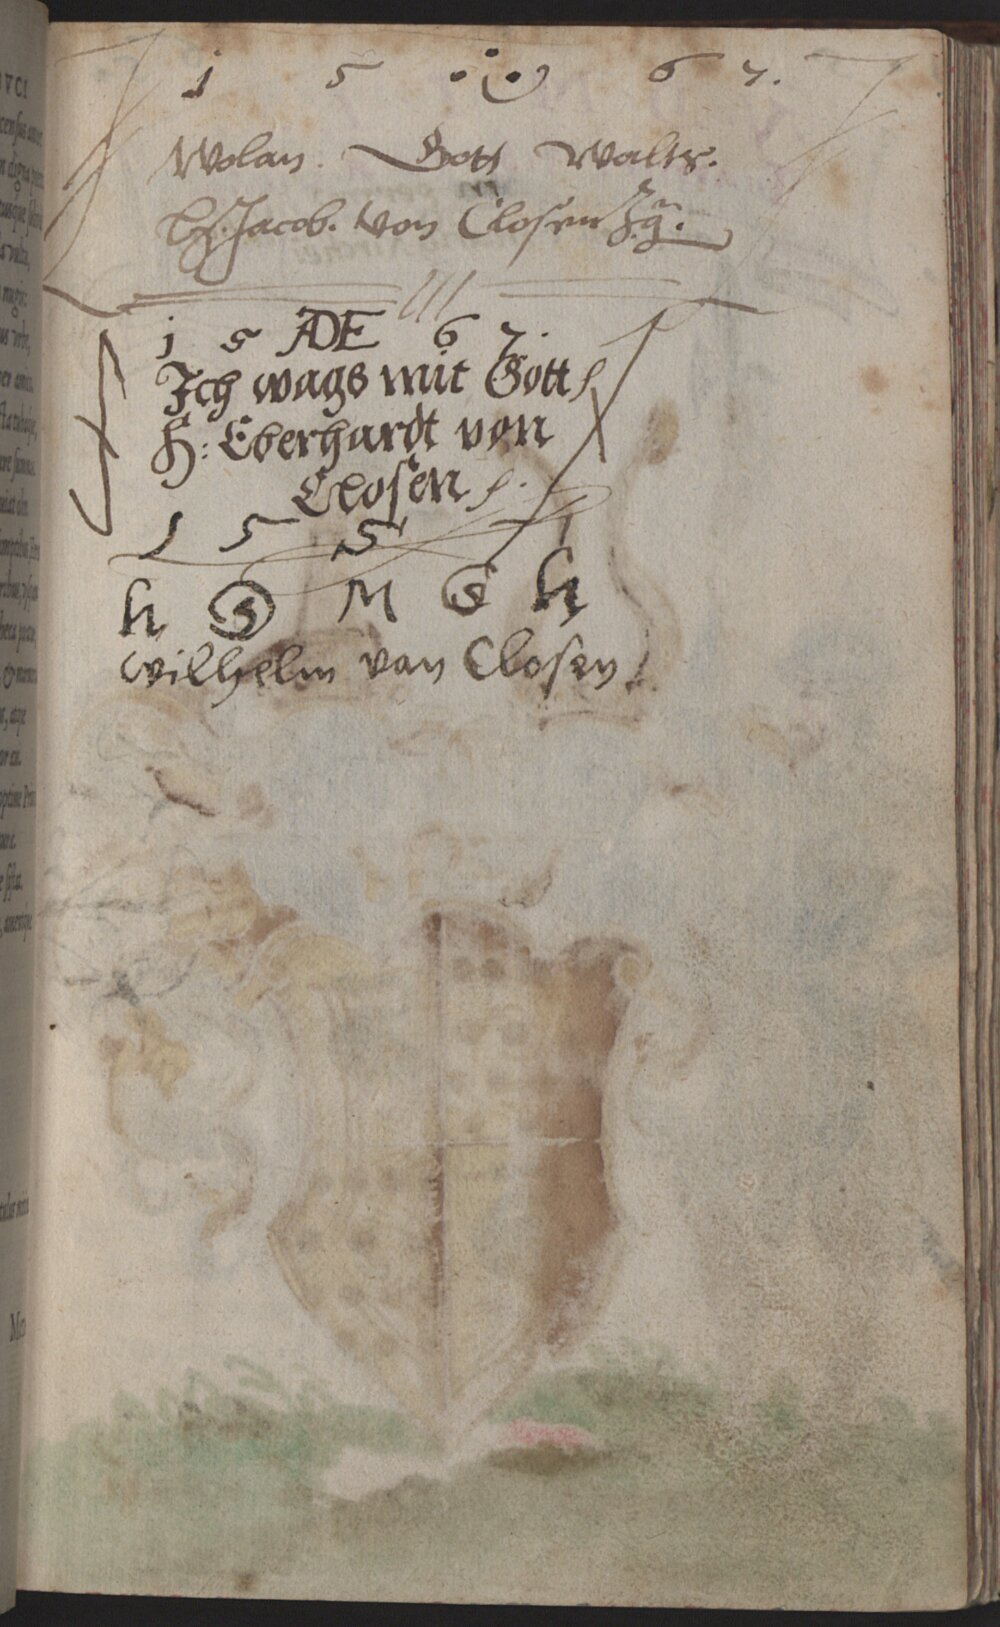 1 5 6 7.
Wolan. Gott Walts.
Hs. Jacob. von Closen Zg.
1 5 ADE 6 7.
Ich wags mit Gott
H: Eberhardt von
Closen
1 5 5
h G M G h
Wilhelm van Closen